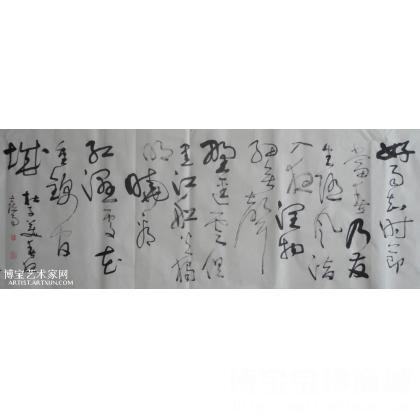 好雨知时节
当春乃发
生随风潜
入夜润物
细无声
野径云俱
黑江船火独
明晓看
红湿处花
重锦官
城
杜子美春
博宝艺术家网
ARTIST.ARTXUN.COM